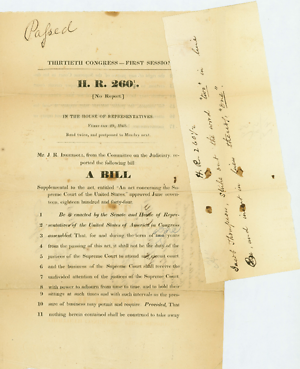 Passed
THIRTIETH CONGRESS—FIRST SESSION
H. R. 260½.
[No Report]
IN THE HOUSE OF REPRESENTATIVES
Read twice, and postponed to Monday next.
Mr. J. R. Ingersoll, from the Committee on the Judiciary, re
the following bill
A BILL
Supplemental to the act, entitled "An act concerning the Su
preme Court of the United States" approved June seven
teen, eighteen hundred and forty-four
1 Be it enacted by the Senate and House of Repre-
2 sentatives of the United States of America in Congress
3 assembled That for and during the term of years
4 from the passing of this act, it shall not be the duty of the
5 justices of the Supreme Court to attend any circuit court
6 and the business of the Supreme Court shall receive the
7 undivided attention of the justices of the Supreme Court
8 with power to adjourn from time to time and to hold their
9 sittings at such times and with such intervals as the pres-
10 sure of business may permit and require Provided, That
11 nothing herein contained shall be construed to take away
H.R. 260½
strike out the word "two" in line
and insert in lieu thereof "one"